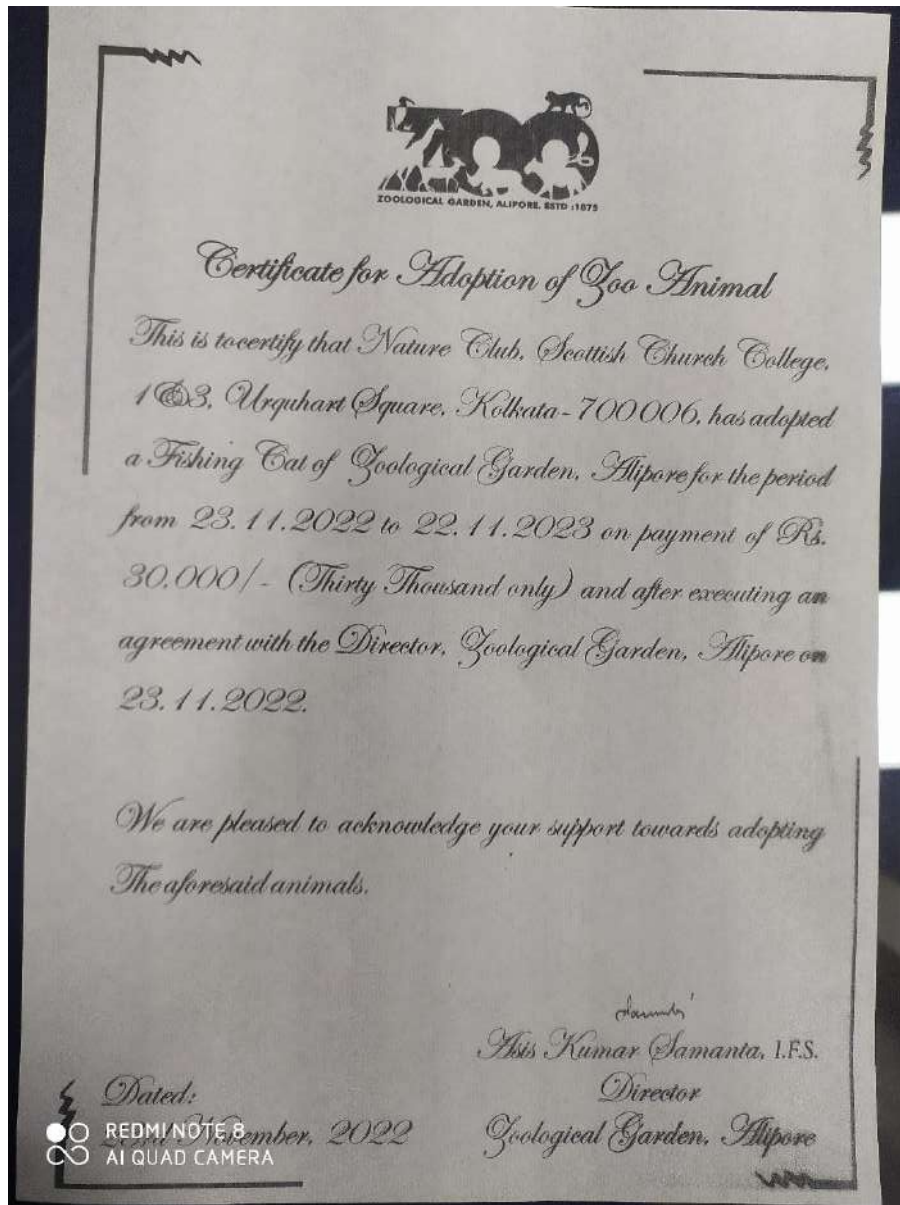 ZOO
ZOOLOGICAL GARDEN, ALIPORE. ESTD :1875
Certificate for Adoption of Zoo Animal
This is tocertify that Nature Club, Scottish Church College,
1&3, Urquhart Square, Kolkata-700006, has adopted
a Fishing Cat of Zoological Garden, Alipore for the period
from 23.11.2022 to 22.11.2023 on payment of Rs.
30,000/- (Thirty Thousand only) and after executing an
agreement with the Director, Zoological Garden, Alipore on
23.11.2022.
We are pleased to acknowledge your support towards adopting
The aforesaid animals.
Asis Kumar Samanta, I.F.S.
Director
Zoological Garden, Alipore
Dated:
November, 2022
REDMI NOTE 8
AI QUAD CAMERA